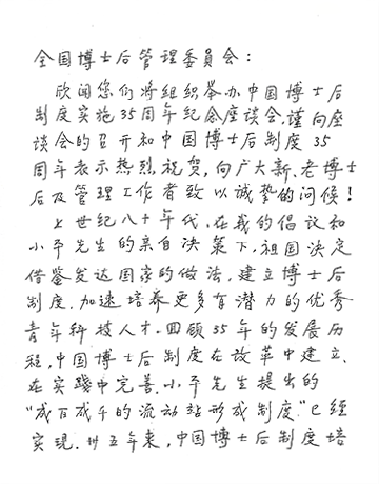 全国博士后管理委員会：
欣闻您们将组织举办中国博士后
制度实施35周年纪念座谈会，谨向座
谈会的召开和中国博士后制度35
周年表示热烈祝贺，向广大新、老博士
后及管理工作者致以诚挚的问候！
上世纪八十年代，在我的倡议和
小平先生的亲自决策下，祖国决定
借鉴发达国家的做法，建立博士后
制度，加速培养更多有潜力的优秀
青年科技人才。回顾35年的发展历
程，中国博士后制度在改革中建立、
在实践中完善，小平先生提出的
“成百成千的流动站形成制度”已经
实现。卅五年来，中国博士后制度培